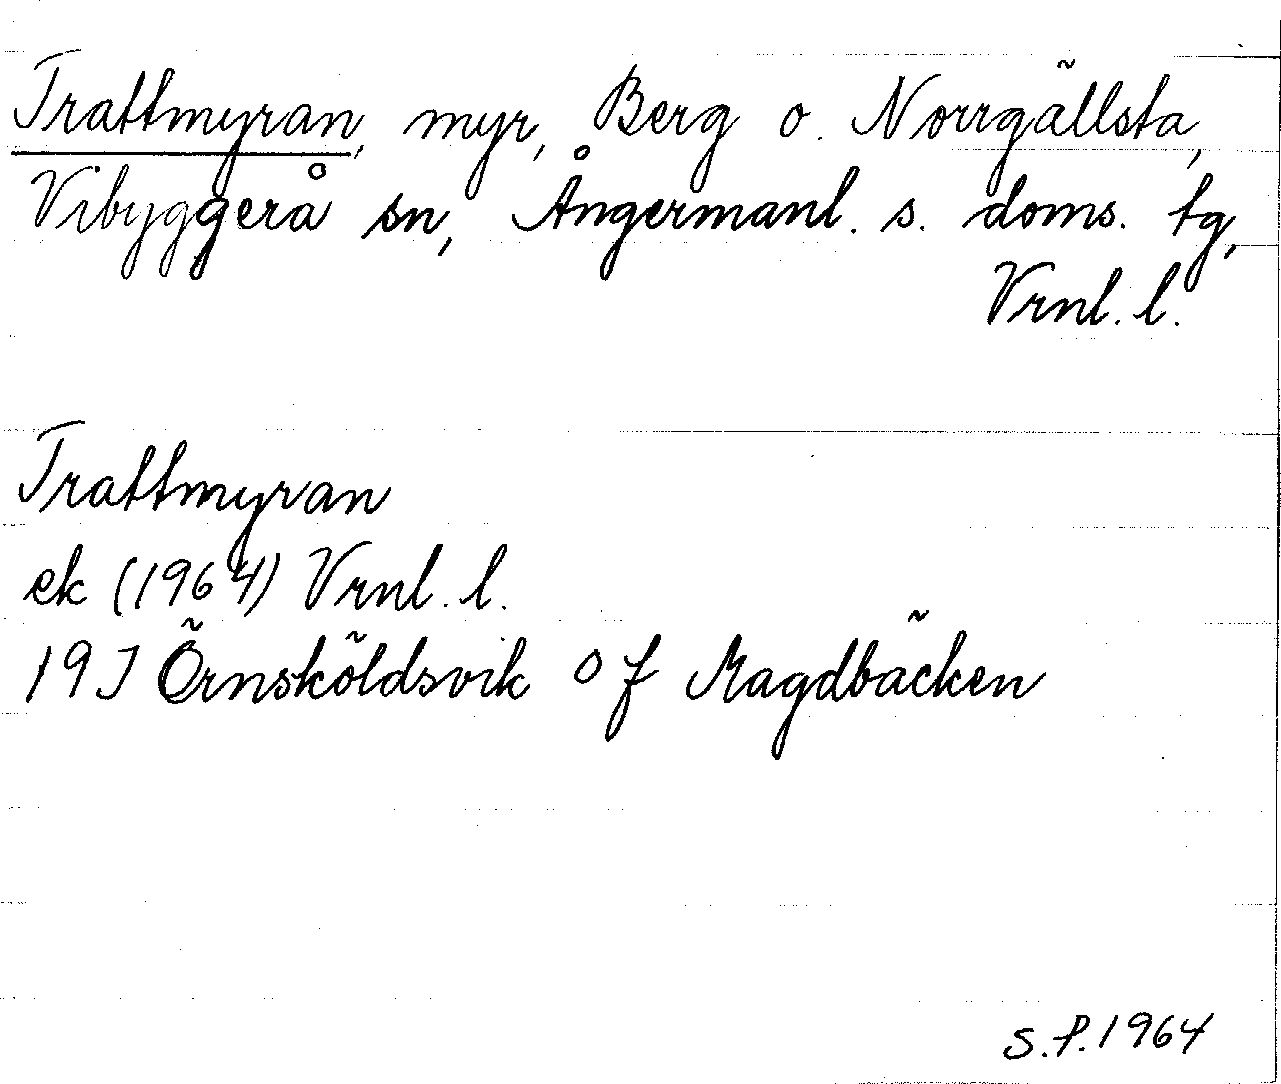 Trattmyran, myr, Berg o. Norrgällsta,
Vibyggerå sn, Ångermanl. s. doms. tg,
Vrnl. l.
Trattmyran
ek (1964) Vrnl. l.
19J Örnsköldsvik of Magdbäcken
S.P. 1964